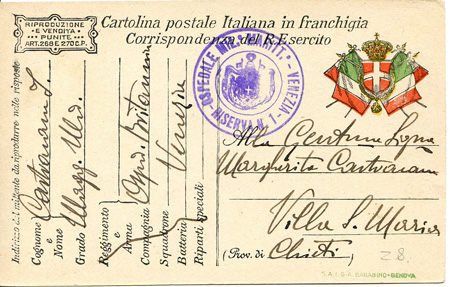 RIPRODUZIONE
E VENDITA
PUNITE
ART. 258 E 270 C.P.
Cartolina postale Italiana in franchigia
Corrispondenza del R. Esercito
OSPEDALE MIL. MARITT. - VENEZIA -
RISERVA N. 1
Indirizzo del mittente da riprodurre nelle risposte
Cognome e Nome
Grado Magg.
Reggimento e Arma
Compagnia Osped.
Squadrone Venezia
Batteria
Riparti speciali
Alla
Margherita
Villa S. Maria
(Prov. di) Chieti
28.
S.A.I.G.A. BARABINO - GENOVA